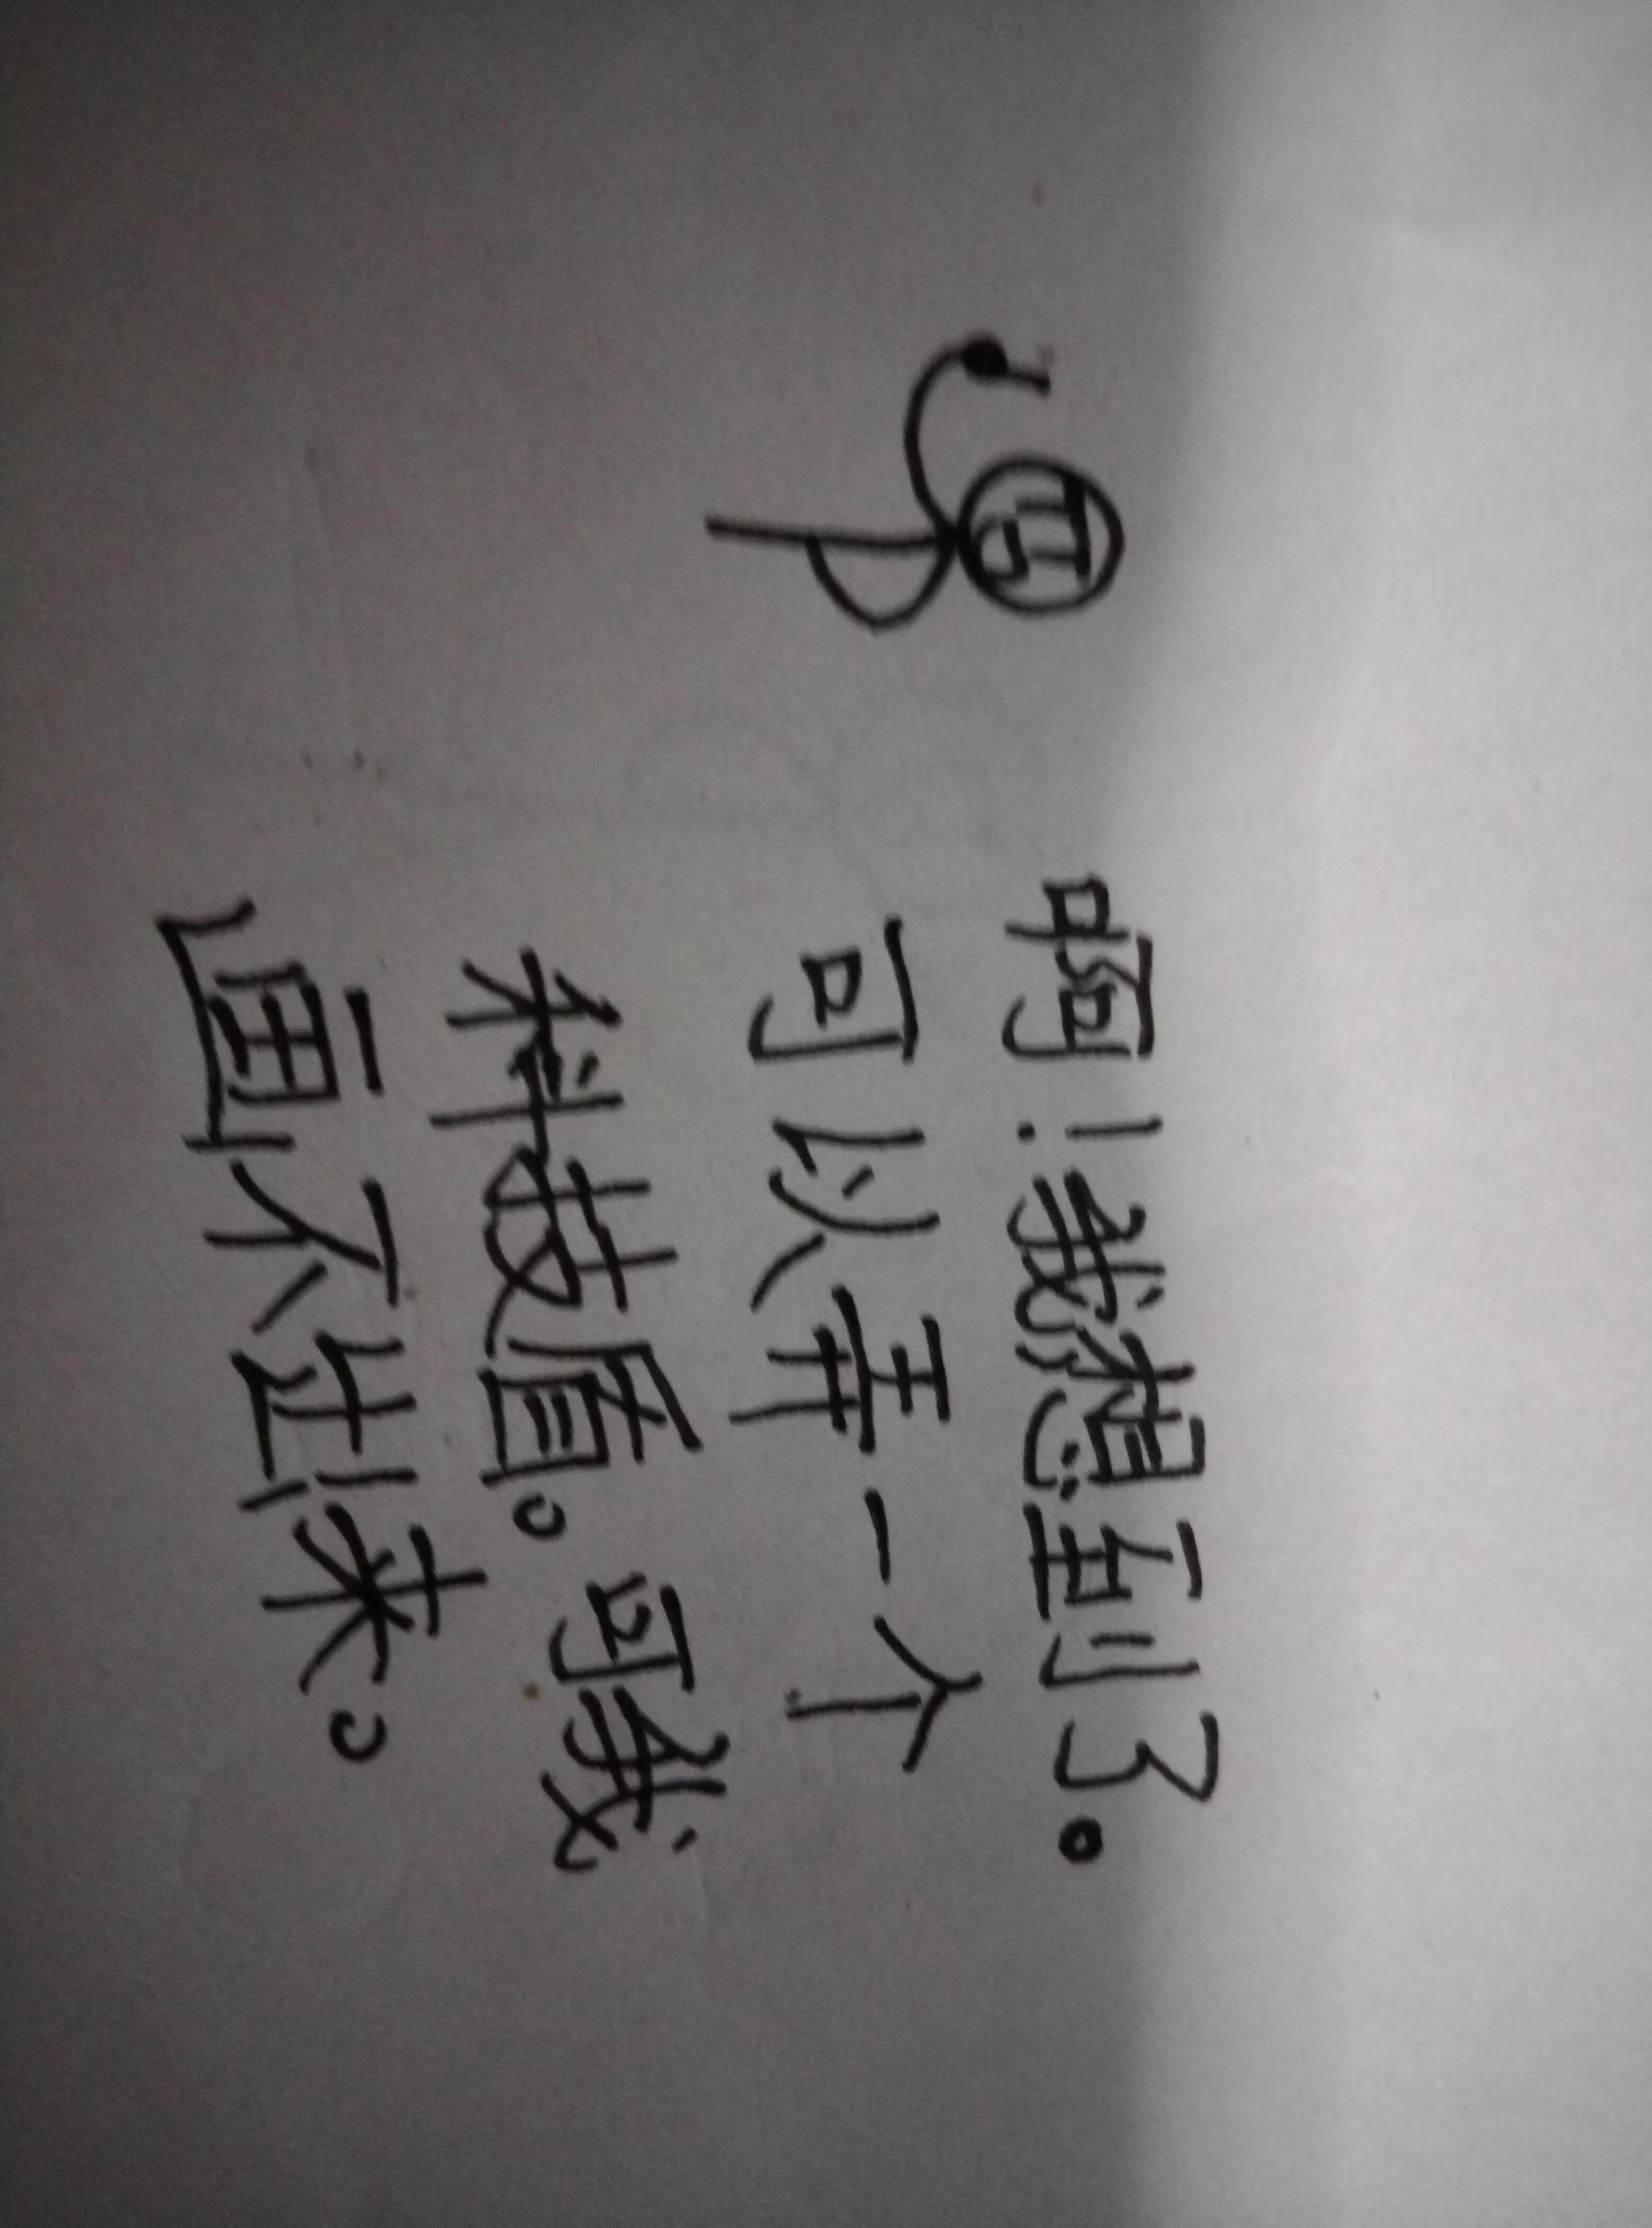 啊！我想到了。
可以弄一个
科技盾。可我
画不出来。